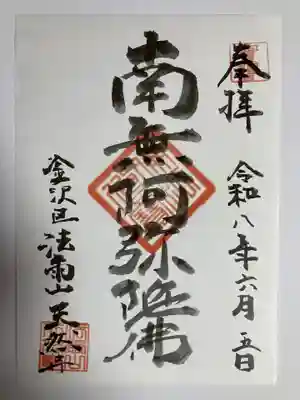 奉拝
令和八年六月五日
南無阿弥陀佛
金沢区法雨山天然寺